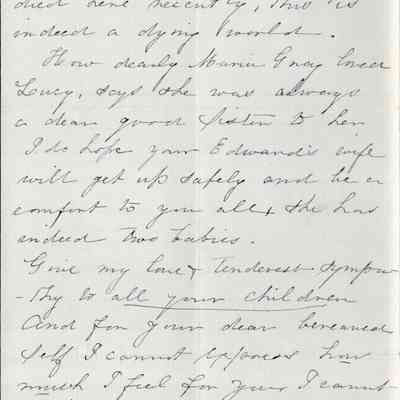 died here recently, this is
indeed a dying world.
How dearly Maria Gray loved
Lucy, says she was always
a dear good sister to her
I do hope your Edward's wife
will get up safely and be a
comfort to you all, she has
indeed two babies.
Give my love & tenderest sympa
-thy to all your children
And for your dear bereaved
self I cannot express how
much I feel for you, I cannot